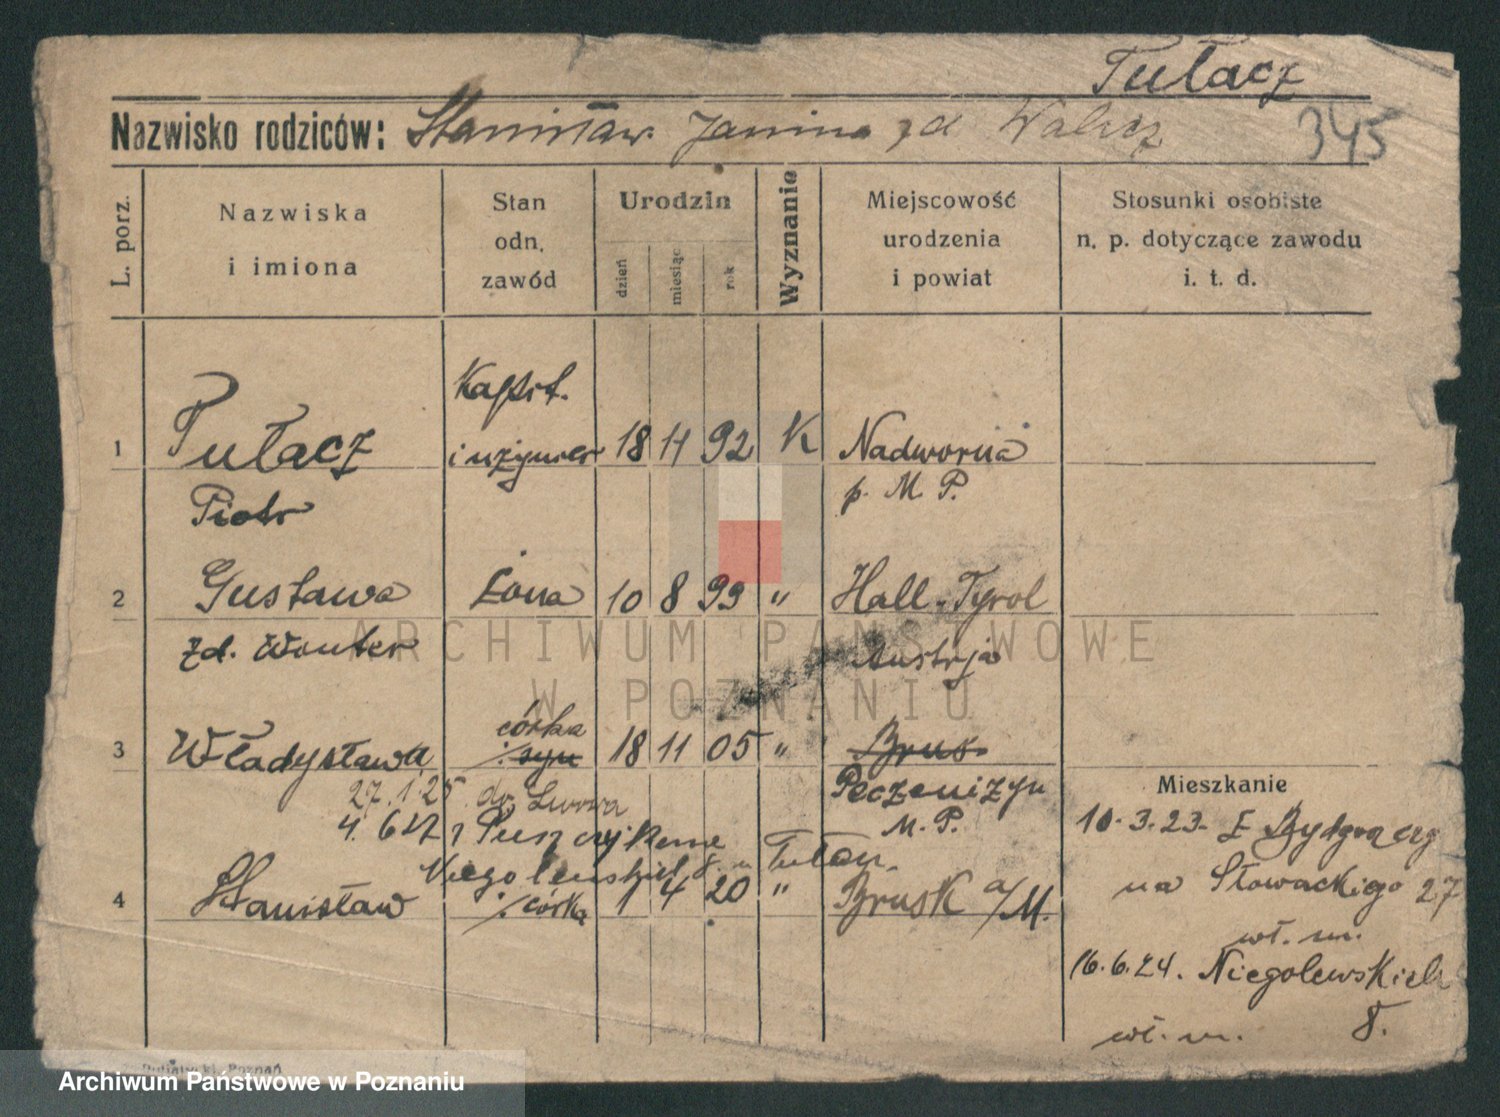 Tułacz
Nazwisko rodziców: Stanisław Janina zd Walicz
345
L. porz.
Nazwiska
i imiona
Stan
odn.
zawód
Urodzin
dzień
miesiąc
rok
Wyznanie
Miejscowość
urodzenia
i powiat
Stosunki osobiste
n. p. dotyczące zawodu
i. t. d.
Kapt.
1 Tułacz inżynier 18 11 92 K Nadworna
Piotr p. M. P.
2 Gustawa Żona 10 8 99 " Hall-Tyrol
zd. Wouter Austrja
córka
3 Władysława syn 18 11 05 " Brus
27.1.25 do Lwowa Peczeniżyn
4.6.27 z Puszczykowa M. P.
Niegolewskich 8. m Tułacz.
4 Stanisław córka 1 4 20 " Brusk a/M.
Mieszkanie
10.3.23. Z Bydgoszczy
na Słowackiego 27
wł. m.
16.6.24. Niegolewskich
wł. m. 8.
ARCHIWUM PAŃSTWOWE
W POZNANIU
Archiwum Państwowe w Poznaniu